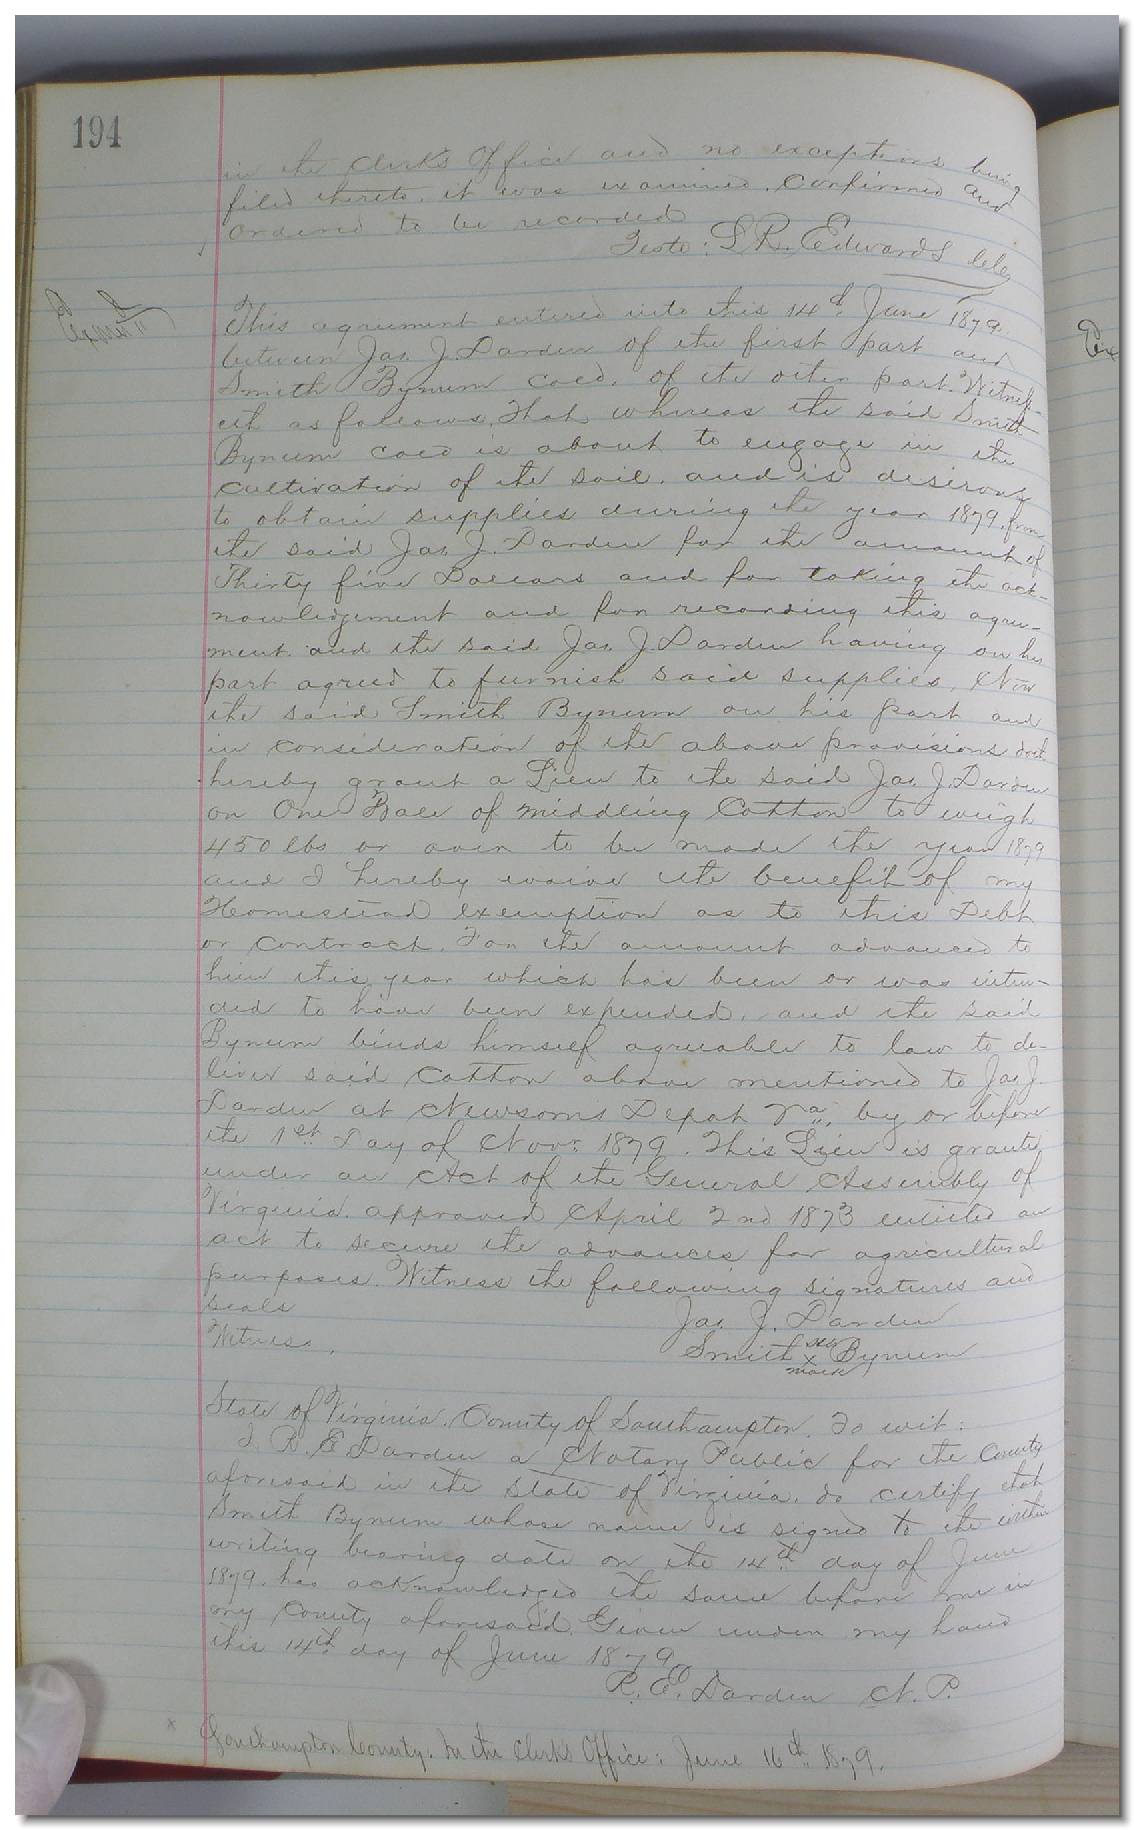 194
in the Clerks Office and no exceptions being
filed thereto, it was examined, Confirmed and
ordered to be recorded
Teste: L R. Edwards Clk
Exmd
This agreement entered into this 14th June 1879
between Jas. J. Darden of the first part and
Smith Bynum cold. of the other part. Witness-
eth as follows, That whereas the said Smith
Bynum cold is about to engage in the
cultivation of the soil, and is desirous
to obtain supplies during the year 1879, from
the said Jas. J. Darden for the amount of
Thirty five Dollars and for taking the ack-
nowledgement and for recording this agree-
ment and the said Jas. J. Darden having on his
part agreed to furnish said supplies, Now
the said Smith Bynum on his part and
in consideration of the above provisions doth
hereby grant a Lien to the said Jas. J. Darden
on One Bale of middling Cotton to weigh
450 lbs or over to be made the year 1879
and I hereby waive the benefit of my
Homestead exemption as to this Debt
or contract. For the amount advanced to
him this year which has been or was inten-
ded to have been expended, and the said
Bynum binds himself agreeable to law to de-
liver said Cotton above mentioned to Jas. J.
Darden at Newsoms Depot Va, by or before
the 1st Day of Novr 1879. This Lien is granted
under an Act of the General Assembly of
Virginia approved April 2nd 1873 entitled an
act to secure the advances for agricultural
purposes. Witness the following signatures and
seals
Jas. J. Darden
Witness.
Smith X Bynum
mark
State of Virginia. County of Southampton, To wit:
I R. E Darden a Notary Public for the County
aforesaid in the State of Virginia, do certify that
Smith Bynum whose name is signed to the within
writing bearing date on the 14th day of June
1879, has acknowledged the same before me in
my County aforesaid. Given under my hand
this 14th day of June 1879
R. E. Darden N. P.
x
Southampton County. In the Clerks Office: June 16th 1879.
Ex